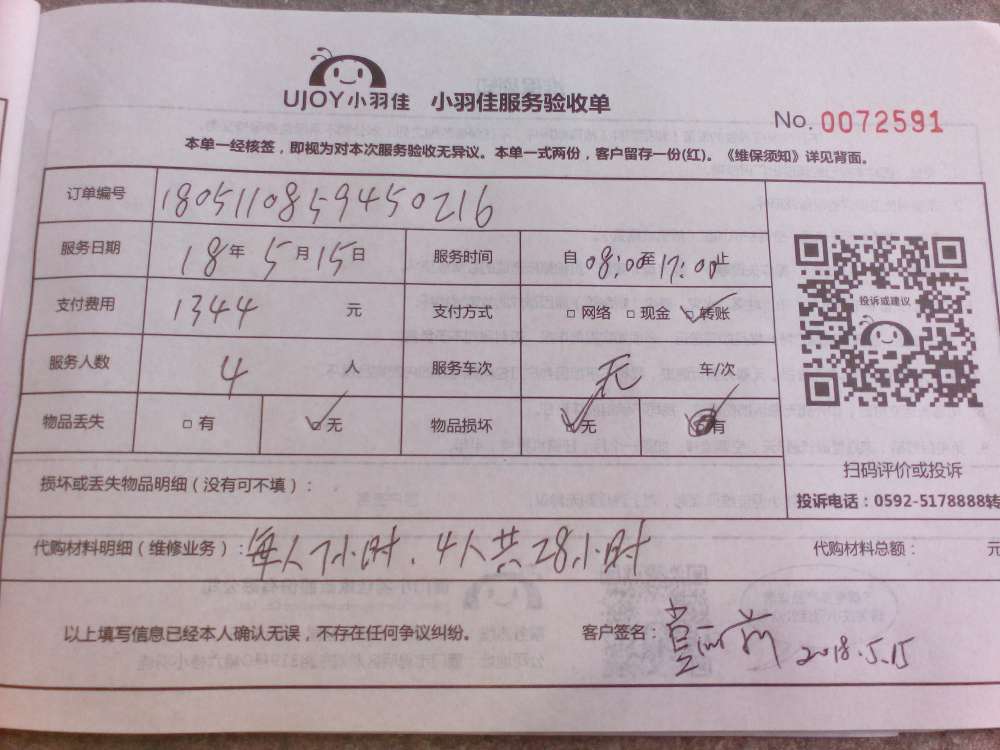 UJOY小羽佳 小羽佳服务验收单
No. 0072591
本单一经核签，即视为对本次服务验收无异议。本单一式两份，客户留存一份(红)。《维保须知》详见背面。
订单编号 1805110859450216
服务日期 18年 5月15日 服务时间 自08:00至17:00止
支付费用 1344 元 支付方式 □ 网络 □ 现金 ☑ 转账
服务人数 4 人 服务车次 无 车/次
物品丢失 □ 有 ☑ 无 物品损坏 ☑ 无 有
投诉或建议
扫码评价或投诉
投诉电话：0592-5178888转
损坏或丢失物品明细（没有可不填）：
代购材料明细（维修业务）：每人7小时．4人共28小时 代购材料总额： 元
以上填写信息已经本人确认无误，不存在任何争议纠纷。 客户签名： 2018.5.15